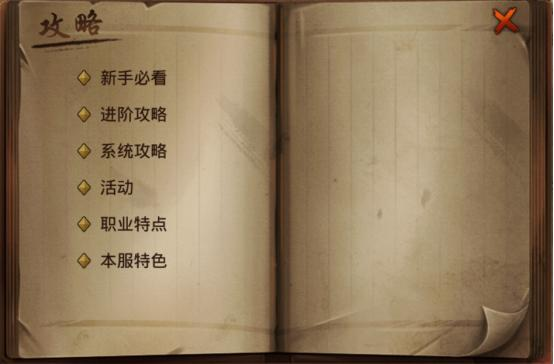 攻略
新手必看
进阶攻略
系统攻略
活动
职业特点
本服特色